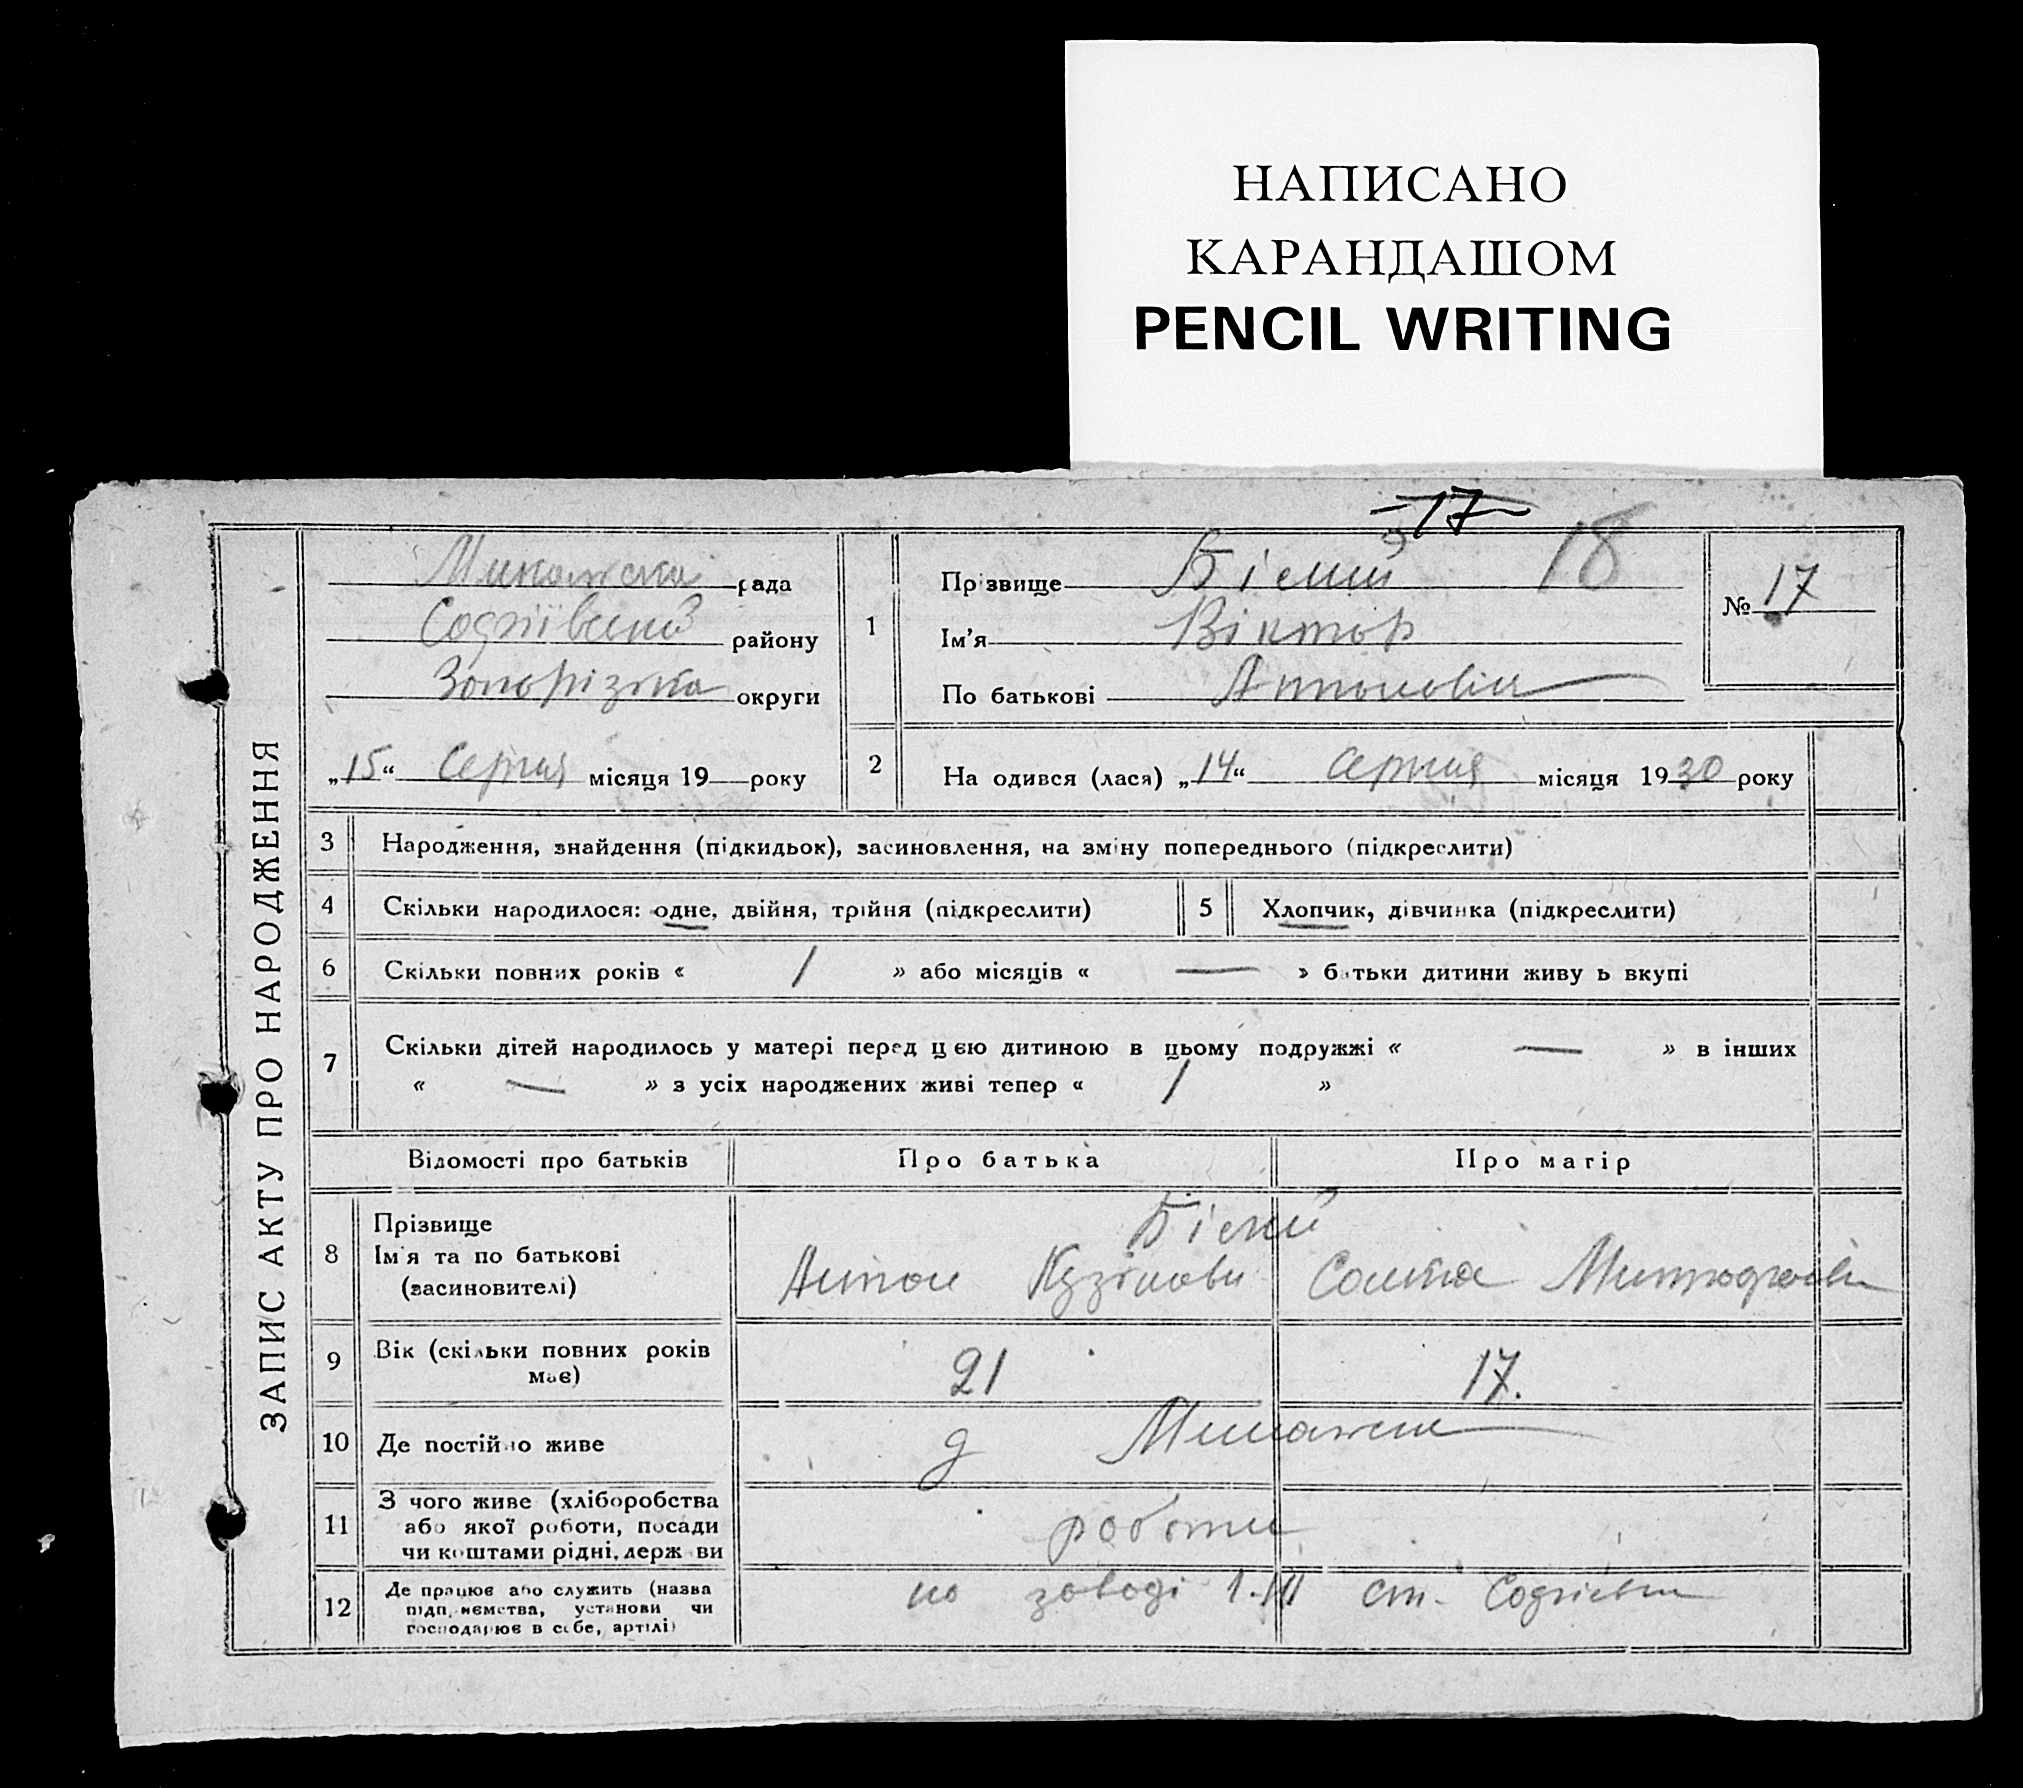 НАПИСАНО
КАРАНДАШОМ
PENCIL WRITING
-17-
18
ЗАПИС АКТУ ПРО НАРОДЖЕННЯ
рада
Софіївський району
Запорізька округи
„15“ Серпня місяця 19 року
1
Прізвище Білий
Ім'я Віктор
По батькові Антонович
№ 17
2 На одився (лася) „14“ Серпня місяця 1930 року
3 Народження, знайдення (підкидьок), засиновлення, на зміну попереднього (підкреслити)
4 Скільки народилося: одне, двійня, трійня (підкреслити)
5 Хлопчик, дівчинка (підкреслити)
6 Скільки повних років « / » або місяців « — » батьки дитини живу ь вкупі
7 Скільки дітей народилось у матері перед цією дитиною в цьому подружжі « — » в інших
« — » з усіх народжених живі тепер « / »
Відомості про батьків Про батька Про матір
8 Прізвище
Ім'я та по батькові
(засиновителі)
Білий
Антон
9 Вік (скільки повних років
має)
21 17.
10 Де постійно живе
11 З чого живе (хліборобства
або якої роботи, посади
чи коштами рідні, держ ви
роботи
12 Де працює або служить (назва
підприємства, установи чи
господарює в себе, артілі)
на заводі ст. Софієвки